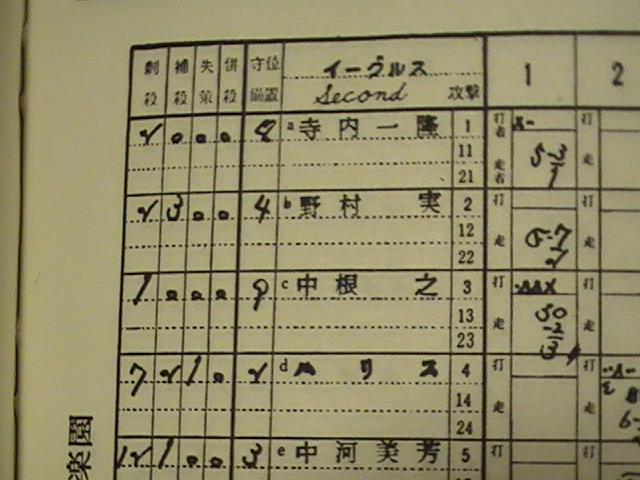 刺 補 失 併 守位
殺 殺 策 殺 備置
イーグルス
Second 攻撃
1 2
2 0 0 0 8 a 寺内一隆 1 打者 打
11 走者 5-3 走
21 1
2 3 0 0 4 b 野村 実 2 打 打
12 走 走
22 2
1 0 0 0 9 c 中根 之 3 打 打
13 走 SO 走
23 -2
3
7 2 1 0 2 d ハリス 4 打 打
14 走 走
24
12 1 0 0 3 e 中河美芳 5 打 打
楽園